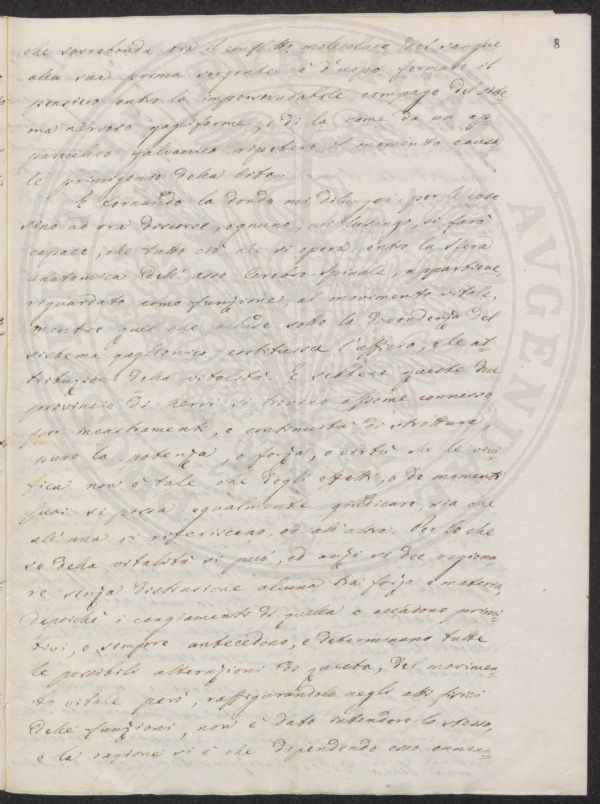 8
che sovrabonda tra il conflitto molecolare del sangue
alla sua prima sorgente è d'uopo fermare il
pensiero entro la imperscrutabile compage del siste=
ma nervoso gangliforme, e di la come da un ap=
parecchio galvanico ripetere il momento causa=
le primigenio della vita.
E tornando la donde mi dilungai, per le cose
sino ad ora discorse, ognuno, mi lusingo, si farà
capace, che tutto ciò che si opera entro la sfera
anatomica dell'asse Cerebro-spinale, appartiene,
riguardato come funzione, al movimento vitale,
mentre quel che accade sotto la dipendenza del
sistema ganglionico costituisce l'essere, e le at=
tribuzioni della vitalità. E sebbene queste due
provincie di nervi si trovino assieme connesse
per incastramenti, e continuità di struttura,
pure la potenza, o forza, o virtù che le vivi=
fica non è tale che degli effetti, o de momenti
suoi si possa egualmente giudicare, sia che
all'una si riferiscano, od all'altra. Per lo che
se della vitalità si può, ed anzi si dee ragiona=
re senza distinzione alcuna tra forza e materia,
dapoichè i cangiamenti di quella e accadono primi=
tivi, e sempre antecedono, e determinano tutte
le possibili alterazioni di questa; del movimen=
to vitale però, raffigurandolo negli atti fisici
delle funzioni, non è dato intendere lo stesso,
e la ragione si è che dipendendo esso onnina=
VGENDAS